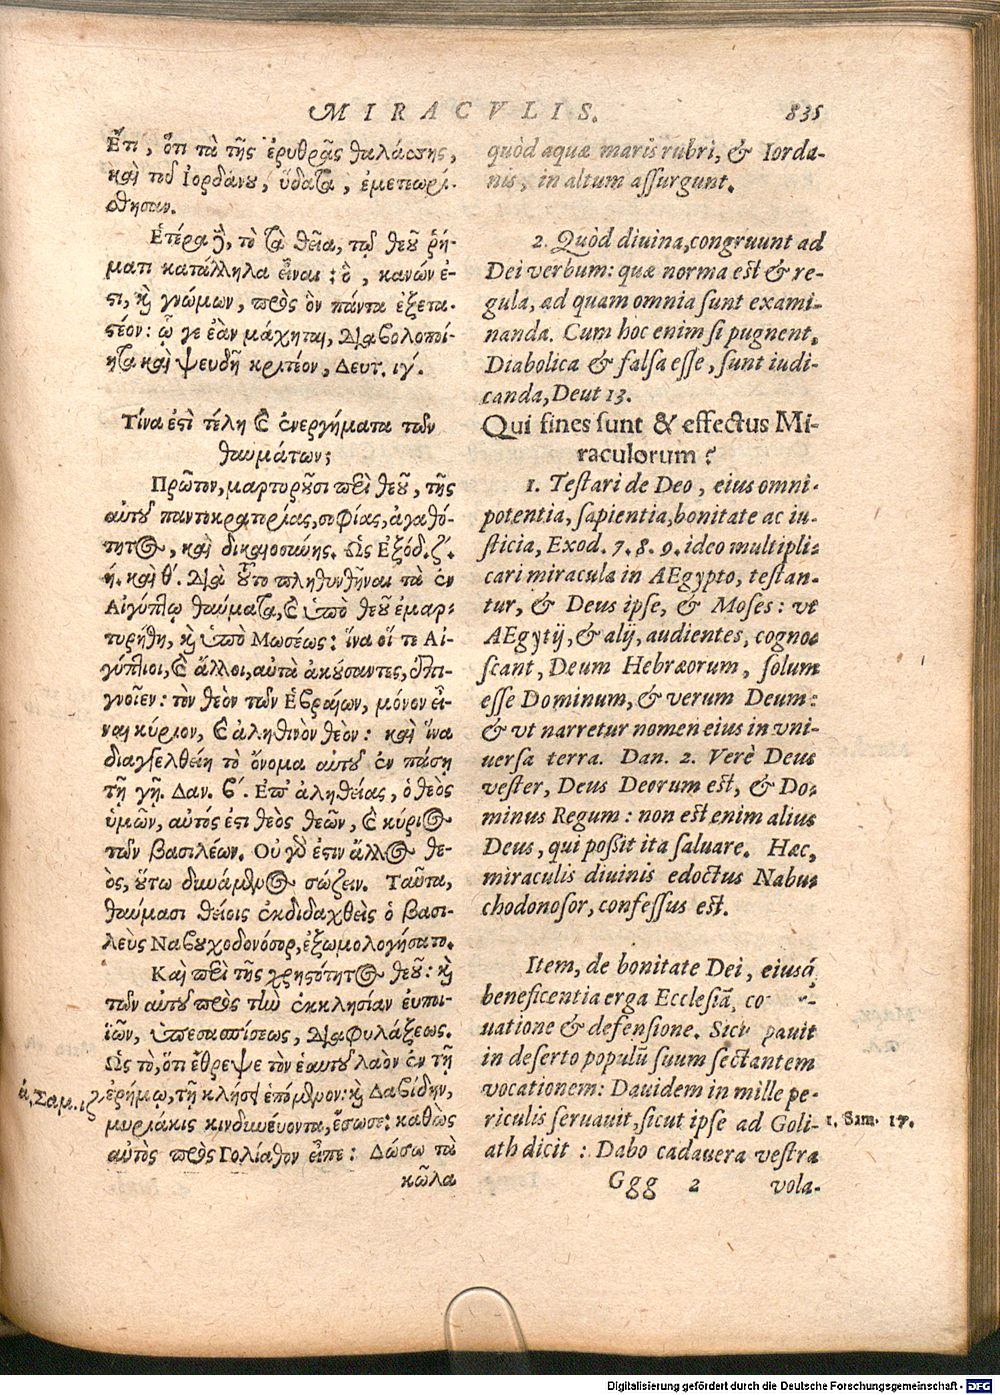 MIRACVLIS. 835
Ἔτι, ὅτι τὰ τῆς ἐρυθρᾶς θαλάσσης,
καὶ τοῦ Ἰορδάνου, ὕδατα, ἐμετεωρί-
σθησαν.
Ἑτέρα δὲ, τὸ τὰ θεῖα, τῷ θεοῦ ῥή-
ματι κατάλληλα εἶναι: ὃ, κανών ἐ-
στι, καὶ γνώμων, πρὸς ὃν πάντα ἐξετα-
στέον: ᾧ γε ἐὰν μάχηται, διαβολοποί-
ητα καὶ ψευδῆ κριτέον, Δευτ. ιγ΄.
Τίνα ἐστὶ τέλη καὶ ἐνεργήματα τῶν
θαυμάτων;
Πρῶτον, μαρτυροῦσι περὶ θεοῦ, τῆς
αὐτοῦ παντοκρατορίας, σοφίας, ἀγαθό-
τητος, καὶ δικαιοσύνης. Ὡς Ἐξόδ. ζ΄.
ή. καὶ θ΄. Διὰ τοῦτο πληθυνθῆναι τὰ ἐν
Αἰγύπτῳ θαύματα, καὶ ὑπὸ θεοῦ ἐμαρ-
τυρήθη, καὶ ὑπὸ Μωσέως: ἵνα οἵ τε Αἰ-
γύπτιοι, καὶ ἄλλοι, αὐτὰ ἀκούσαντες, ἐπι-
γνοῖεν: τὸν θεὸν τῶν Ἑβραίων, μόνον εἶ-
ναι κύριον, καὶ ἀληθινὸν θεὸν: καὶ ἵνα
διαγγελθείη τὸ ὄνομα αὐτοῦ ἐν πάσῃ
τῇ γῇ. Δαν. β΄. Ἐπ' ἀληθείας, ὁ θεὸς
ὑμῶν, αὐτός ἐστι θεὸς θεῶν, καὶ κύριος
τῶν βασιλέων. Οὐ γὰρ ἔστιν ἄλλος θε-
ὸς, οὕτω δυνάμενος σώζειν. Ταῦτα,
θαύμασι θείοις ἐκδιδαχθεὶς ὁ βασι-
λεὺς Ναβουχοδονόσορ, ἐξωμολογήσατο.
Καὶ περὶ τῆς χρηστότητος θεοῦ: καὶ
τῶν αὐτοῦ πρὸς τὴν ἐκκλησίαν εὐποι-
ϊῶν, ὑπερασπίσεως, διαφυλάξεως.
Ὡς τὸ, ὅτι ἔθρεψε τὸν ἑαυτοῦ λαὸν ἐν τῇ
ἐρήμῳ, τῇ κλήσει ἑπόμενον: καὶ Δαβίδην,
ά. Σαμ. ιζ
μυριάκις κινδυνεύοντα, ἔσωσε: καθὼς
αὐτὸς πρὸς Γολίαθον εἶπε: Δώσω τὰ
κῶλα
quòd aquæ maris rubri, & Iorda-
nis, in altum assurgunt.
2. Quòd diuina, congruunt ad
Dei verbum: quæ norma est & re-
gula, ad quam omnia sunt exami-
nanda. Cum hoc enim si pugnent,
Diabolica & falsa esse, sunt iudi-
canda, Deut 13.
Qui fines sunt & effectus Mi-
raculorum?
1. Testari de Deo, eius omni-
potentia, sapientia, bonitate ac iu-
sticia, Exod. 7. 8. 9. ideo multipli-
cari miracula in AEgypto, testan-
tur, & Deus ipse, & Moses: vt
AEgytij, & alij, audientes, cogno-
scant, Deum Hebræorum, solum
esse Dominum, & verum Deum:
& vt narretur nomen eius in vni-
uersa terra. Dan. 2. Verè Deus
vester, Deus Deorum est, & Do-
minus Regum: non est enim alius
Deus, qui possit ita saluare. Hæc,
miraculis diuinis edoctus Nabu-
chodonosor, confessus est.
Item, de bonitate Dei, eiusq́
beneficentia erga Ecclesiã, co
uatione & defensione. Sicut pauit
in deserto populũ suum sectantem
vocationem: Dauidem in mille pe-
riculis seruauit, sicut ipse ad Goli-
1. Sam. 17.
ath dicit: Dabo cadauera vestra
Ggg 2 vola-
Digitalisierung gefördert durch die Deutsche Forschungsgemeinschaft - DFG